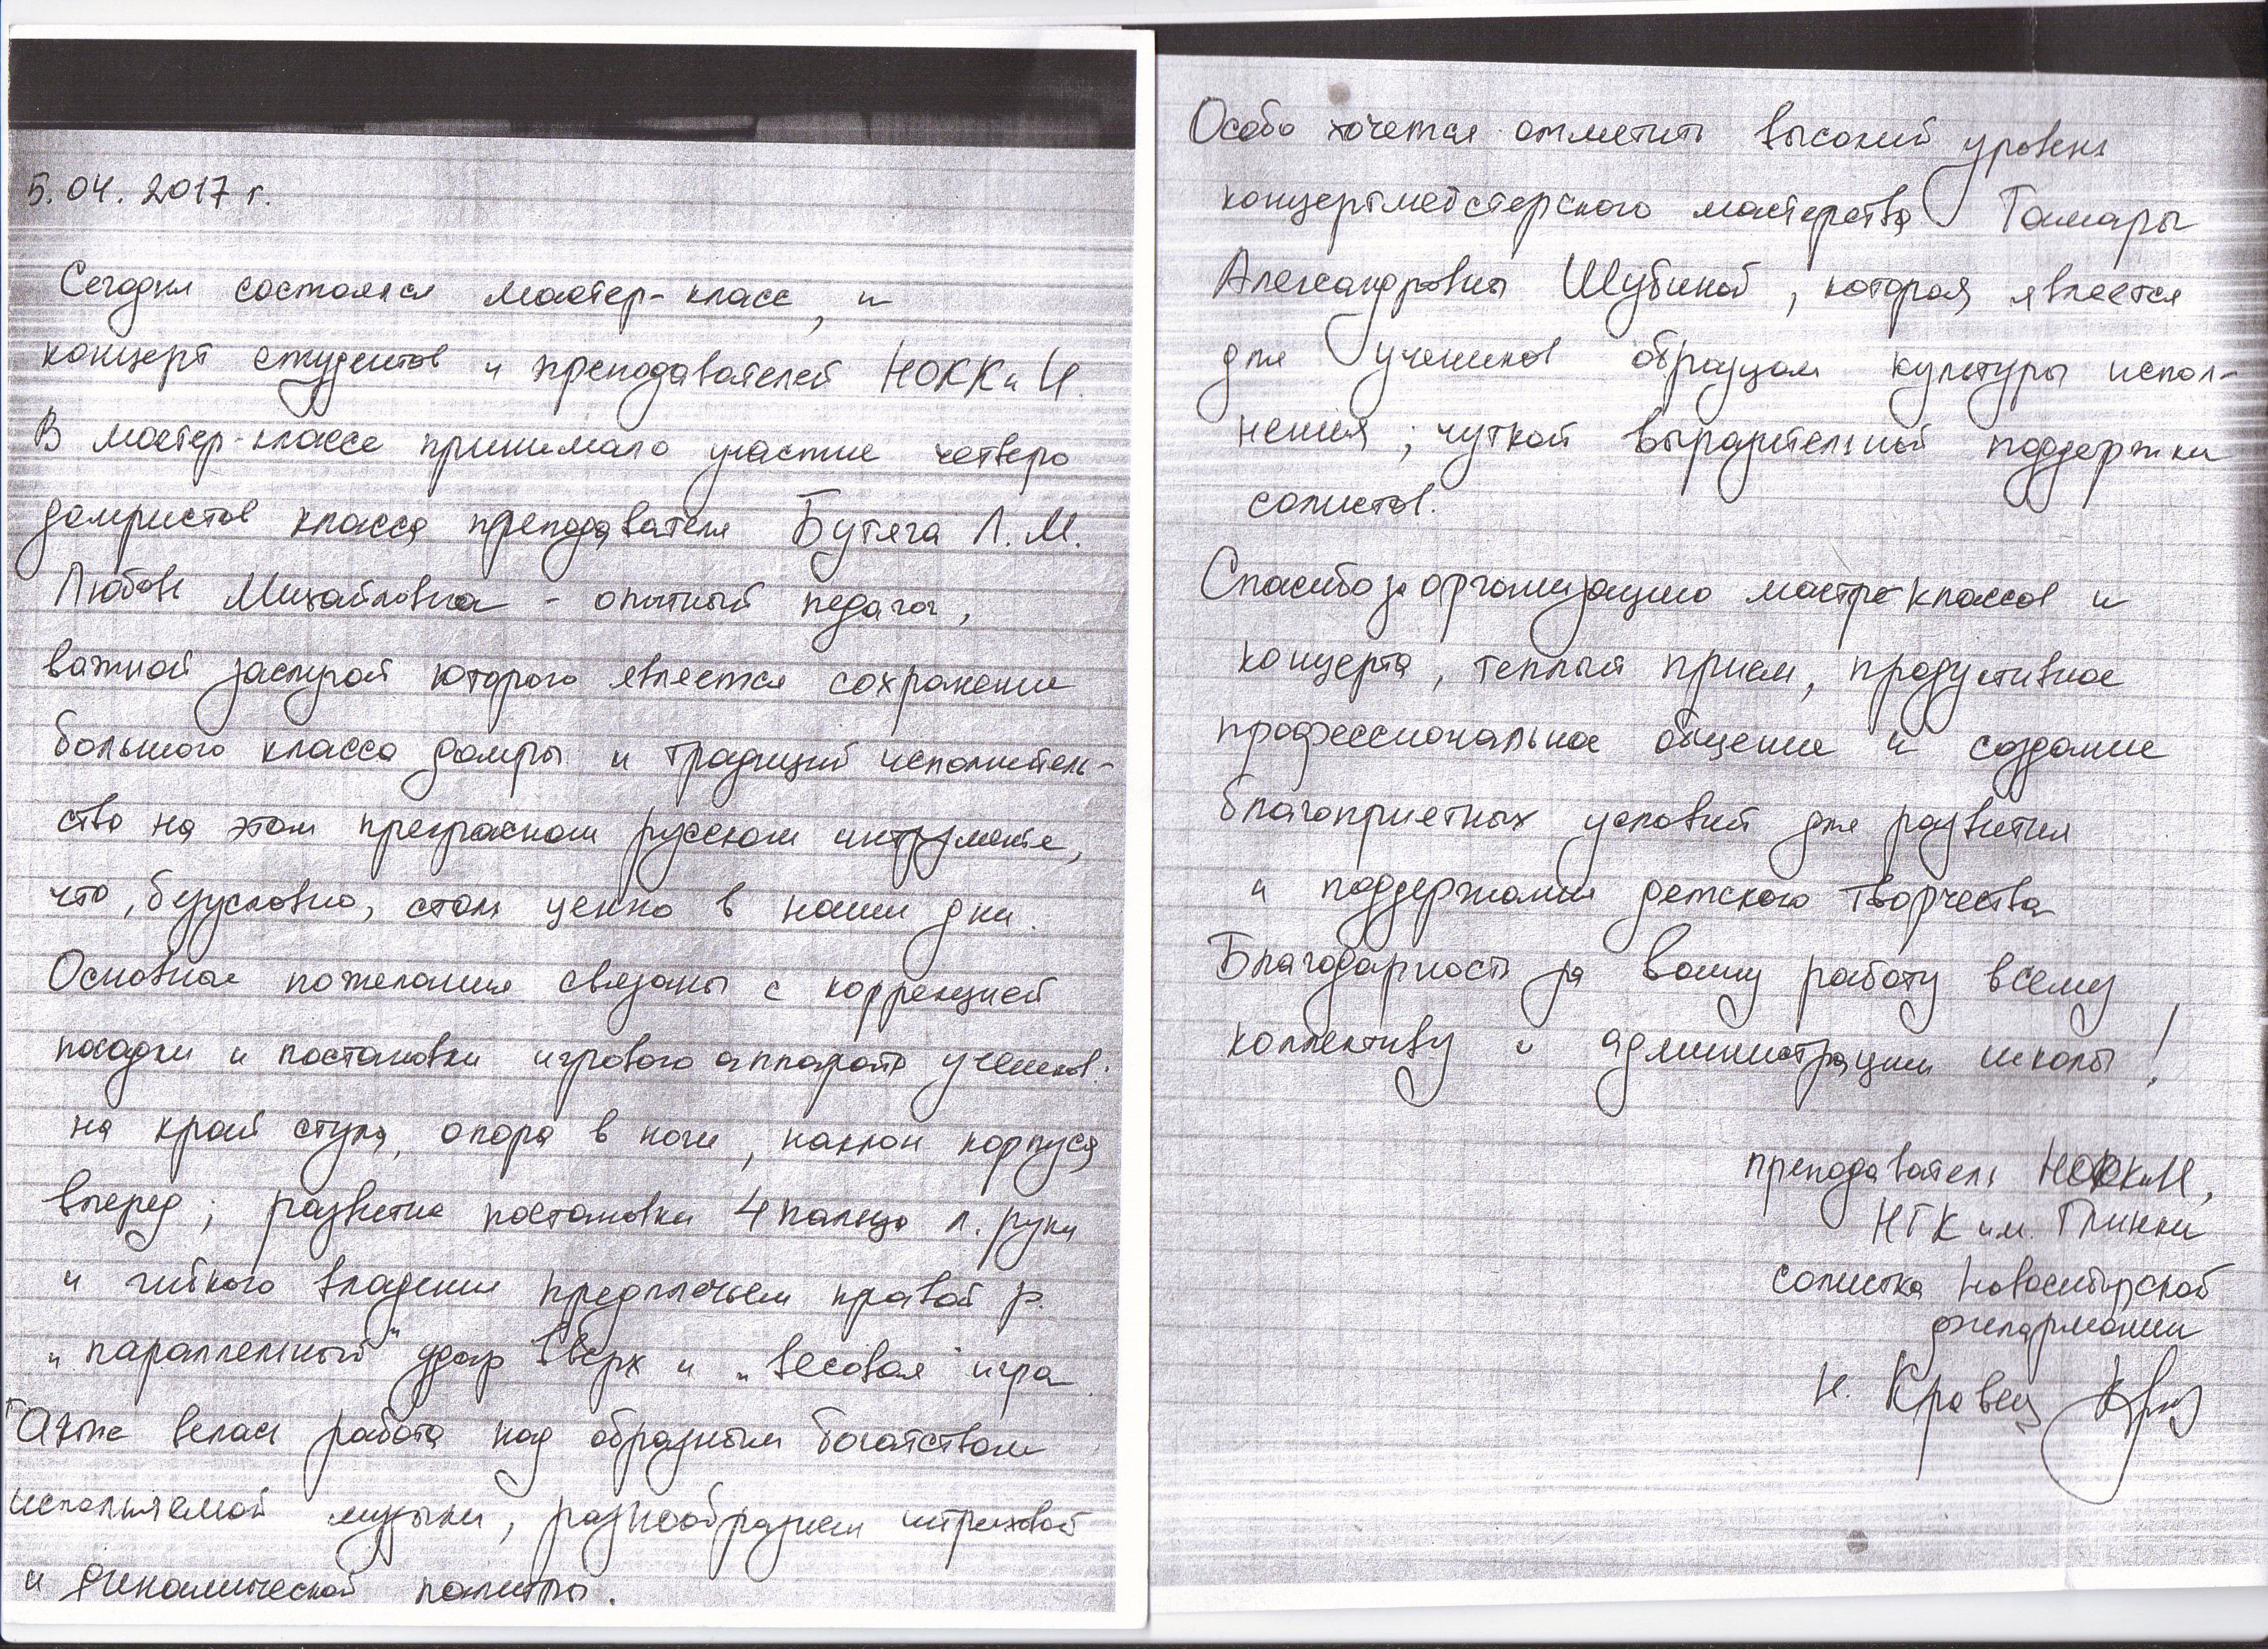 5.04.2017 г.
Сегодня состоялся мастер-класс, и
концерт студентов и преподавателей НОККиИ.
В мастер-классе принимало участие четверо
домристов класса преподавателя Бутяга Л.М.
Любовь Михайловна - опытный педагог,
важной заслугой которого является сохранение
большого класса домры и традиций исполнитель-
ства на этом прекрасном русском инструменте,
что, безусловно, столь ценно в наши дни.
Основные пожелания связаны с коррекцией
посадки и постановки игрового аппарата учеников:
на край стула, опора в ноги, наклон корпуса
вперед; развитие постановки 4 пальца л. руки
и гибкого владения предплечьем правой р.
„параллельный" удар вверх и „весовая" игра.
Также велась работа над образным богатством
исполняемой музыки, разнообразием штриховой
и динамической палитры.
Особо хочется отметить высокий уровень
концертмейстерского мастерства Тамары
Александровны Шубиной, которая является
для учеников образцом культуры испол-
нения; чуткой выразительной поддержки
солистов.
Спасибо за организацию мастер-классов и
концерта, теплый прием, продуктивное
профессиональное общение и создание
благоприятных условий для развития
и поддержания детского творчества
Благодарность за вашу работу всему
коллективу и администрации школы!
преподаватель НОККиИ,
НГК им. Глинки
солистка Новосибирской
филармонии
Н. Кравец